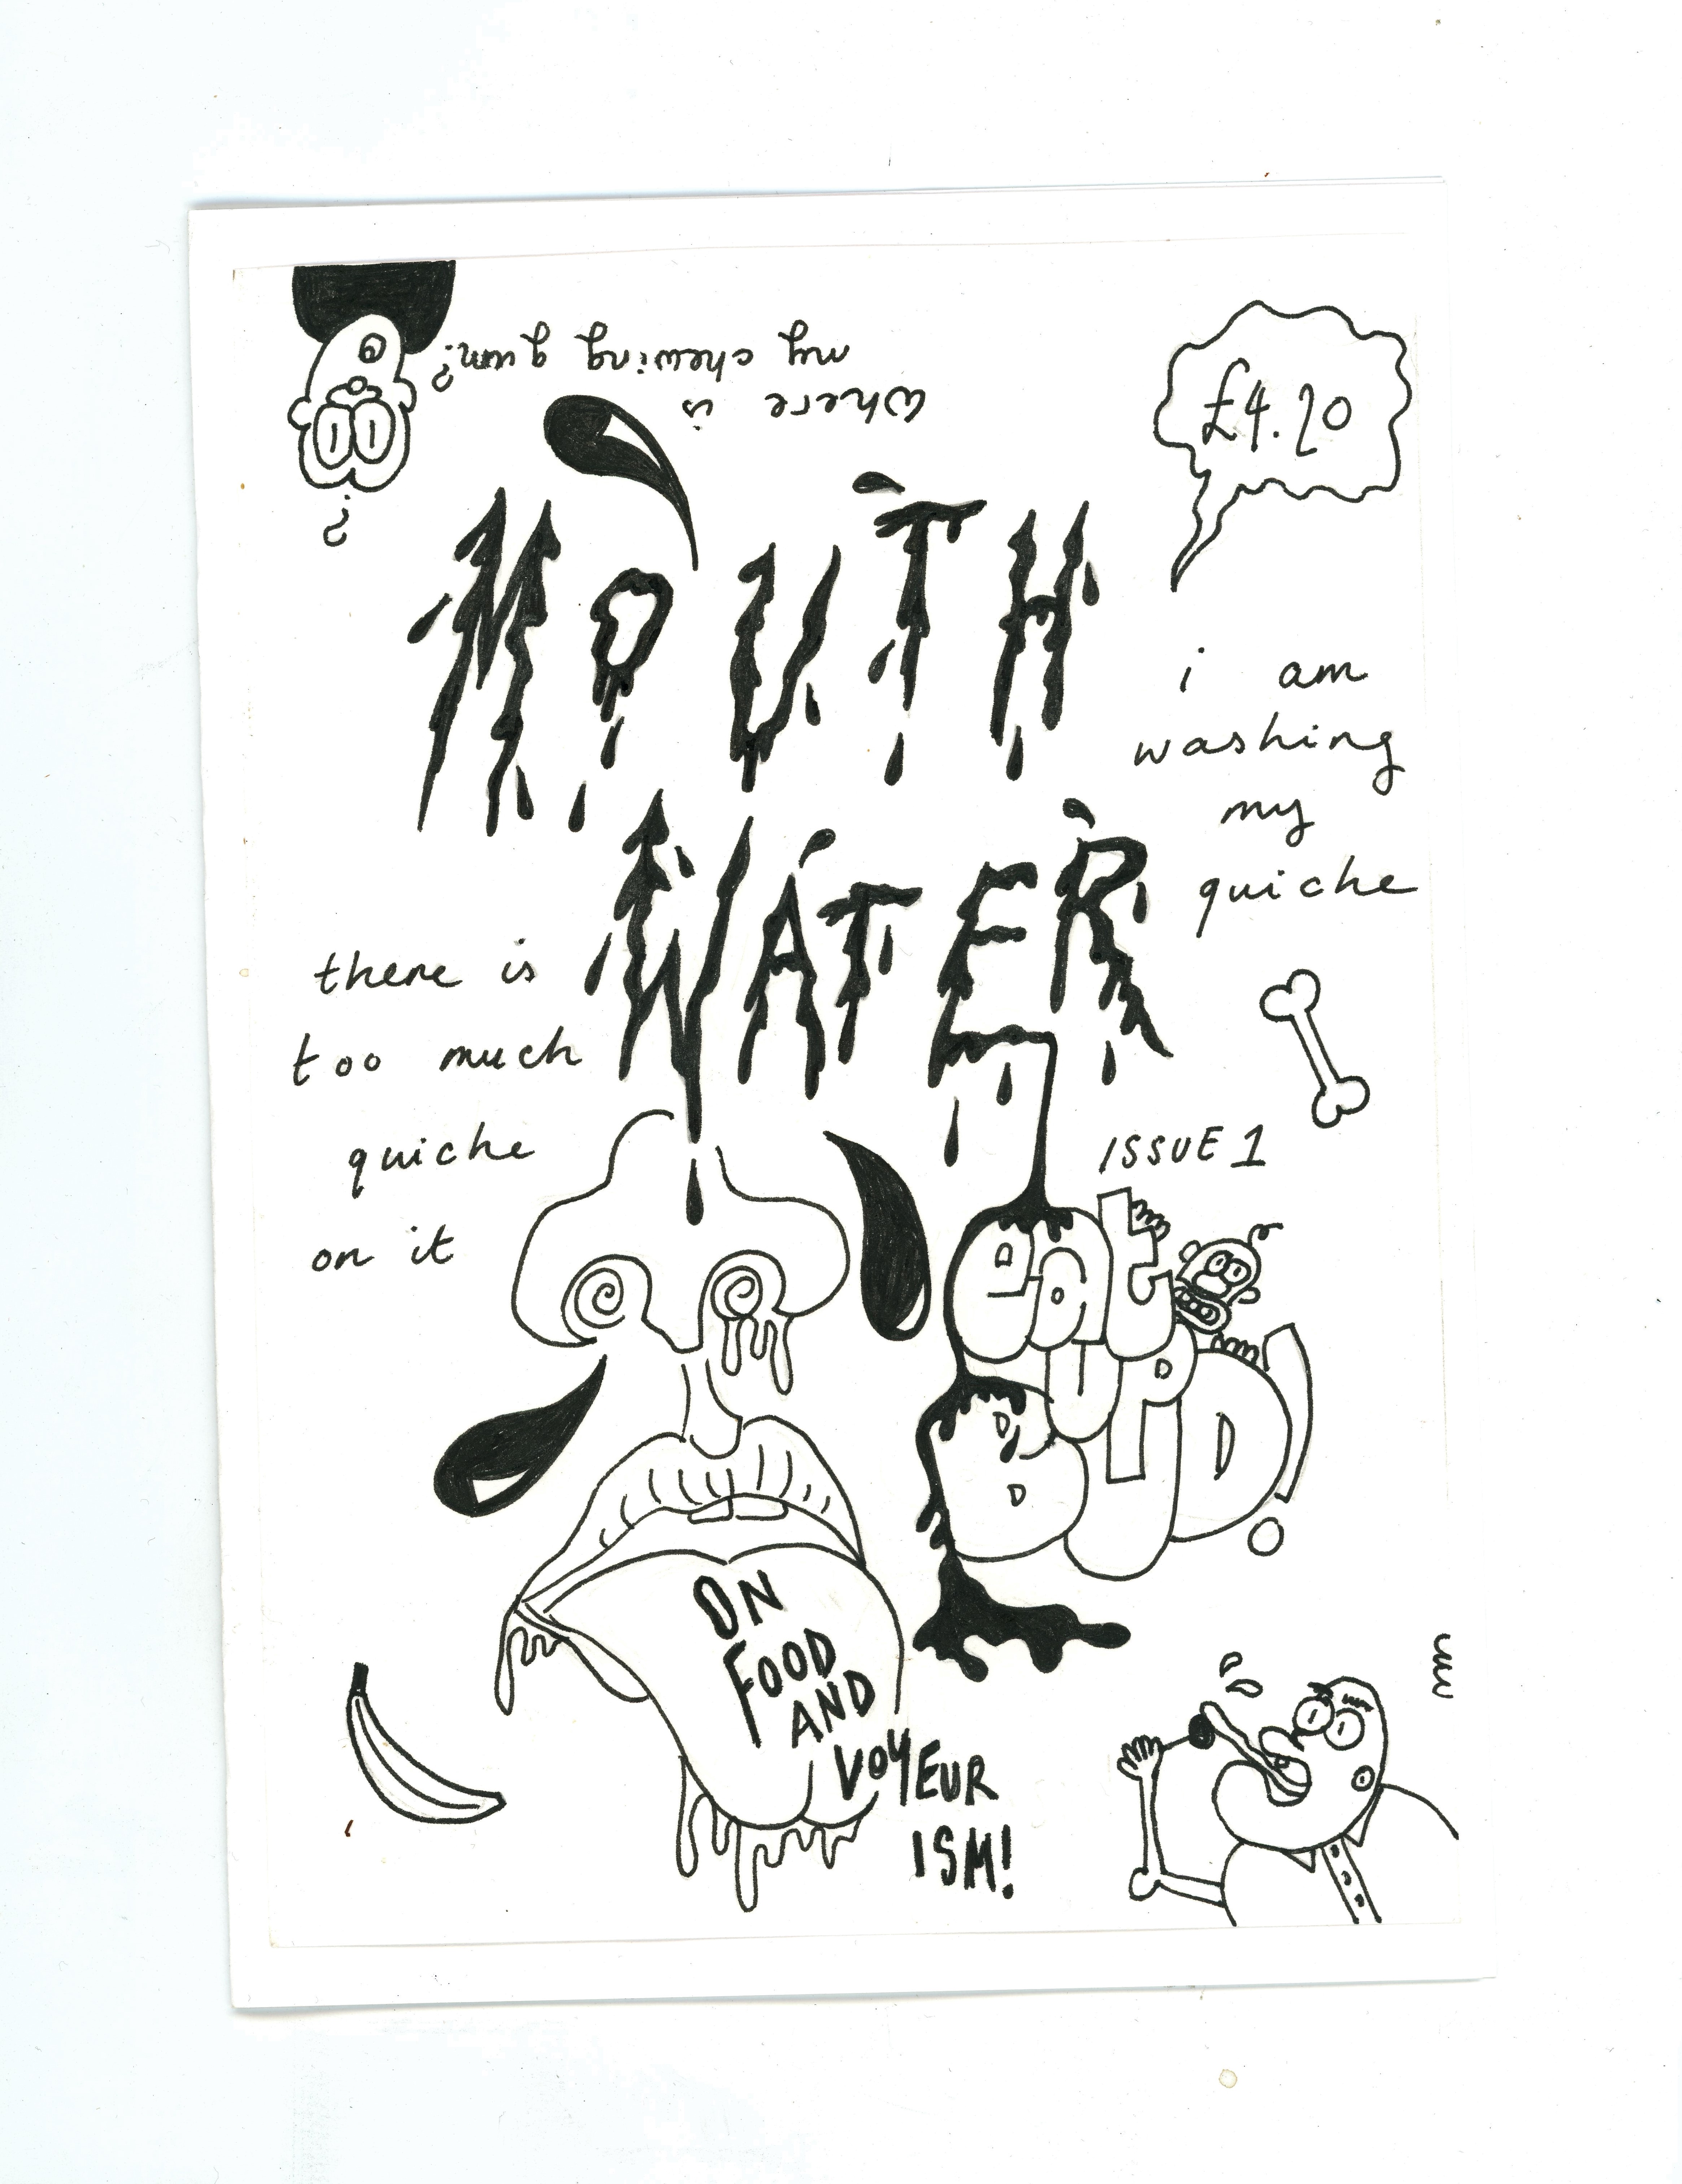 where is
my chewing gum?
?
£4.20
MOUTH
WATER
i am
washing
my
quiche
there is
too much
quiche
on it
ISSUE 1
eat
UP
BUD!
ON
FOOD
AND
VOYEUR
ISM!